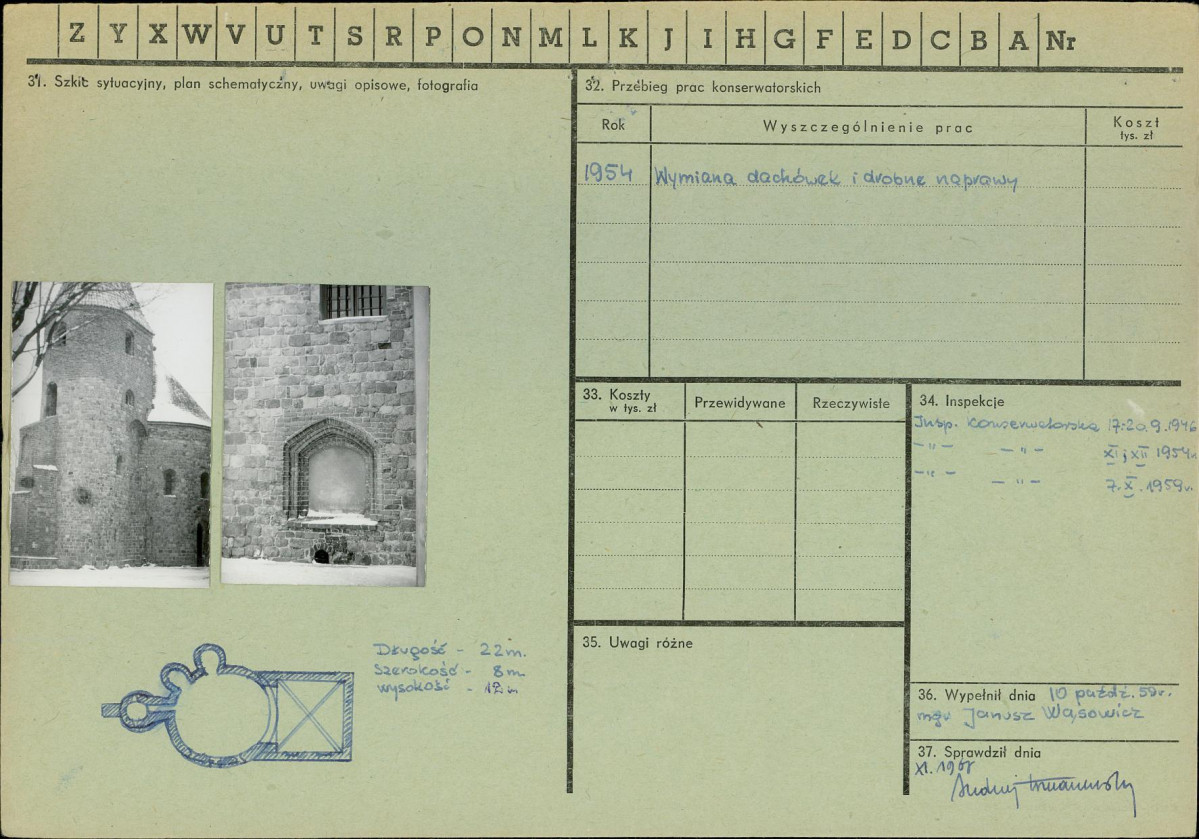 Z Y X W V U T S R P O N M L K J I H G F E D C B A Nr
31. Szkic sytuacyjny, plan schematyczny, uwagi opisowe, fotografia
Długość - 22 m.
Szerokość - 8 m
wysokość - 12 m
32. Przebieg prac konserwatorskich
Rok Wyszczególnienie prac Koszt
tys. zł
1954 Wymiana dachówek i drobne naprawy
33. Koszty
w tys. zł
Przewidywane Rzeczywiste
34. Inspekcje
Insp. Konserwatorska 17-20.9.1946
-"- -"- XI i XII 1954r
-"- -"- 7.X.1959r.
35. Uwagi różne
36. Wypełnił dnia 10 paźdź. 59r.
mgr Janusz Wąsowicz
37. Sprawdził dnia
XI.
Andrzej